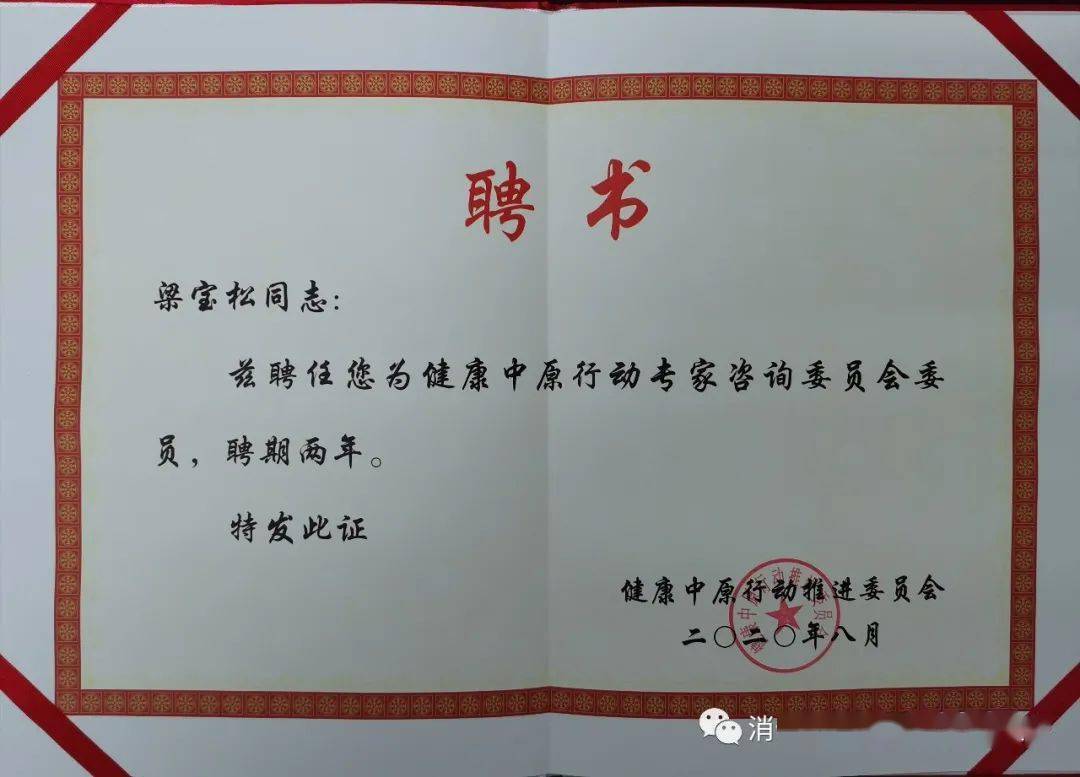 聘书
梁宝松同志:
兹聘任您为健康中原行动专家咨询委员会委
员，聘期两年。
特发此证
健康中原行动推进委员会
二〇二〇年八月
消